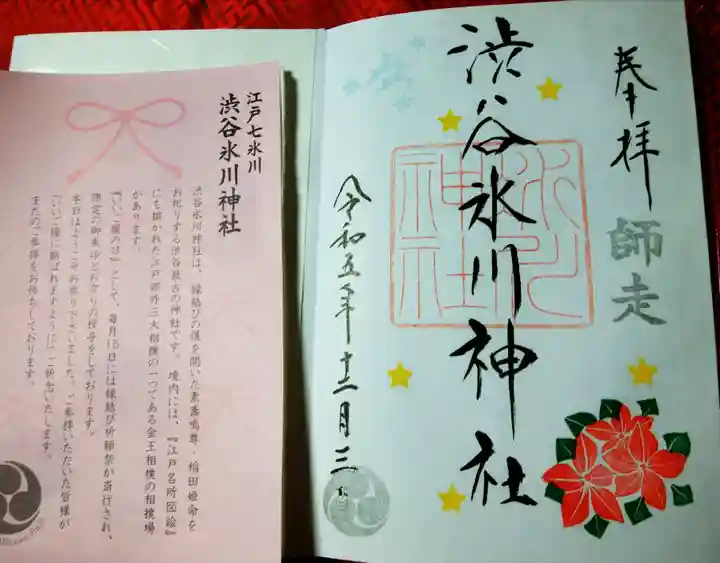 奉拝
師走
渋谷氷川神社
氷川
神社
令和五年十二月三日
江戸七氷川
渋谷氷川神社
渋谷氷川神社は、縁結びの道を開いた素盞鳴尊・稲田姫命を
お祀りする渋谷最古の神社です。境内には、『江戸名所図絵』
にも描かれた江戸郊外三大相撲の一つである金王相撲の相撲場
があります。
『いいご縁の日』として、毎月15日には縁結び祈願祭が斎行され、
限定の御朱印とお守りの授与をしております。
本日はようこそお参り下さいました。ご参拝いただいた皆様が
「いいご縁に結ばれますように」ご祈念いたします。
またのご参拝をお待ちしております。